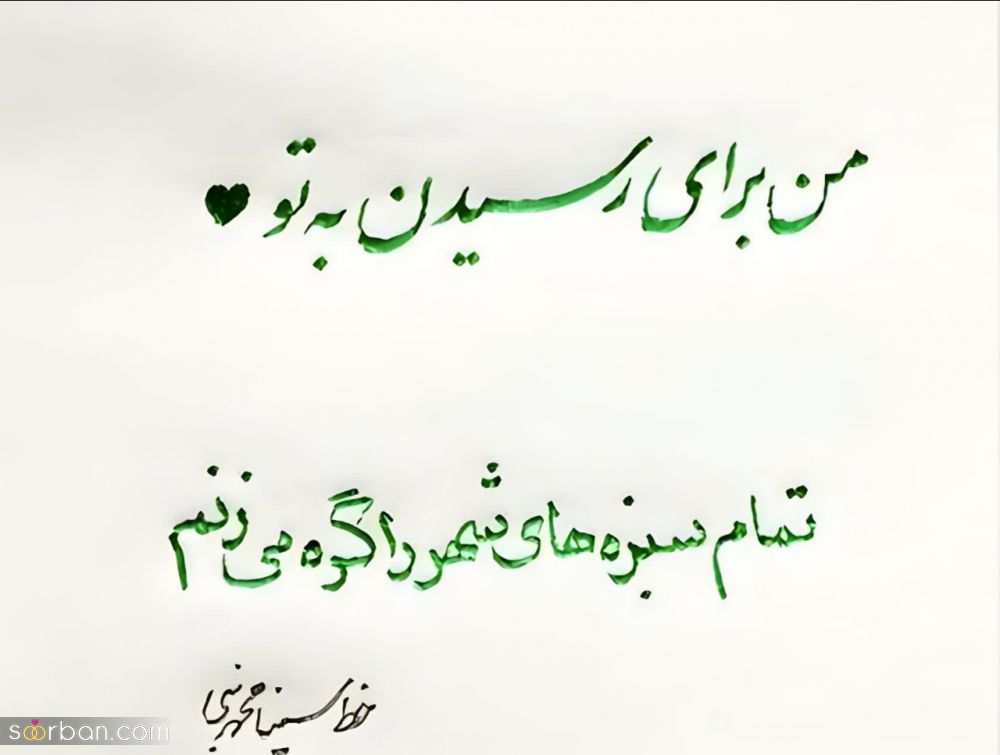 من برای رسیدن به تو ♥
تمام سبزه های شهر را گره می زنم
خط سینا
soorban.com